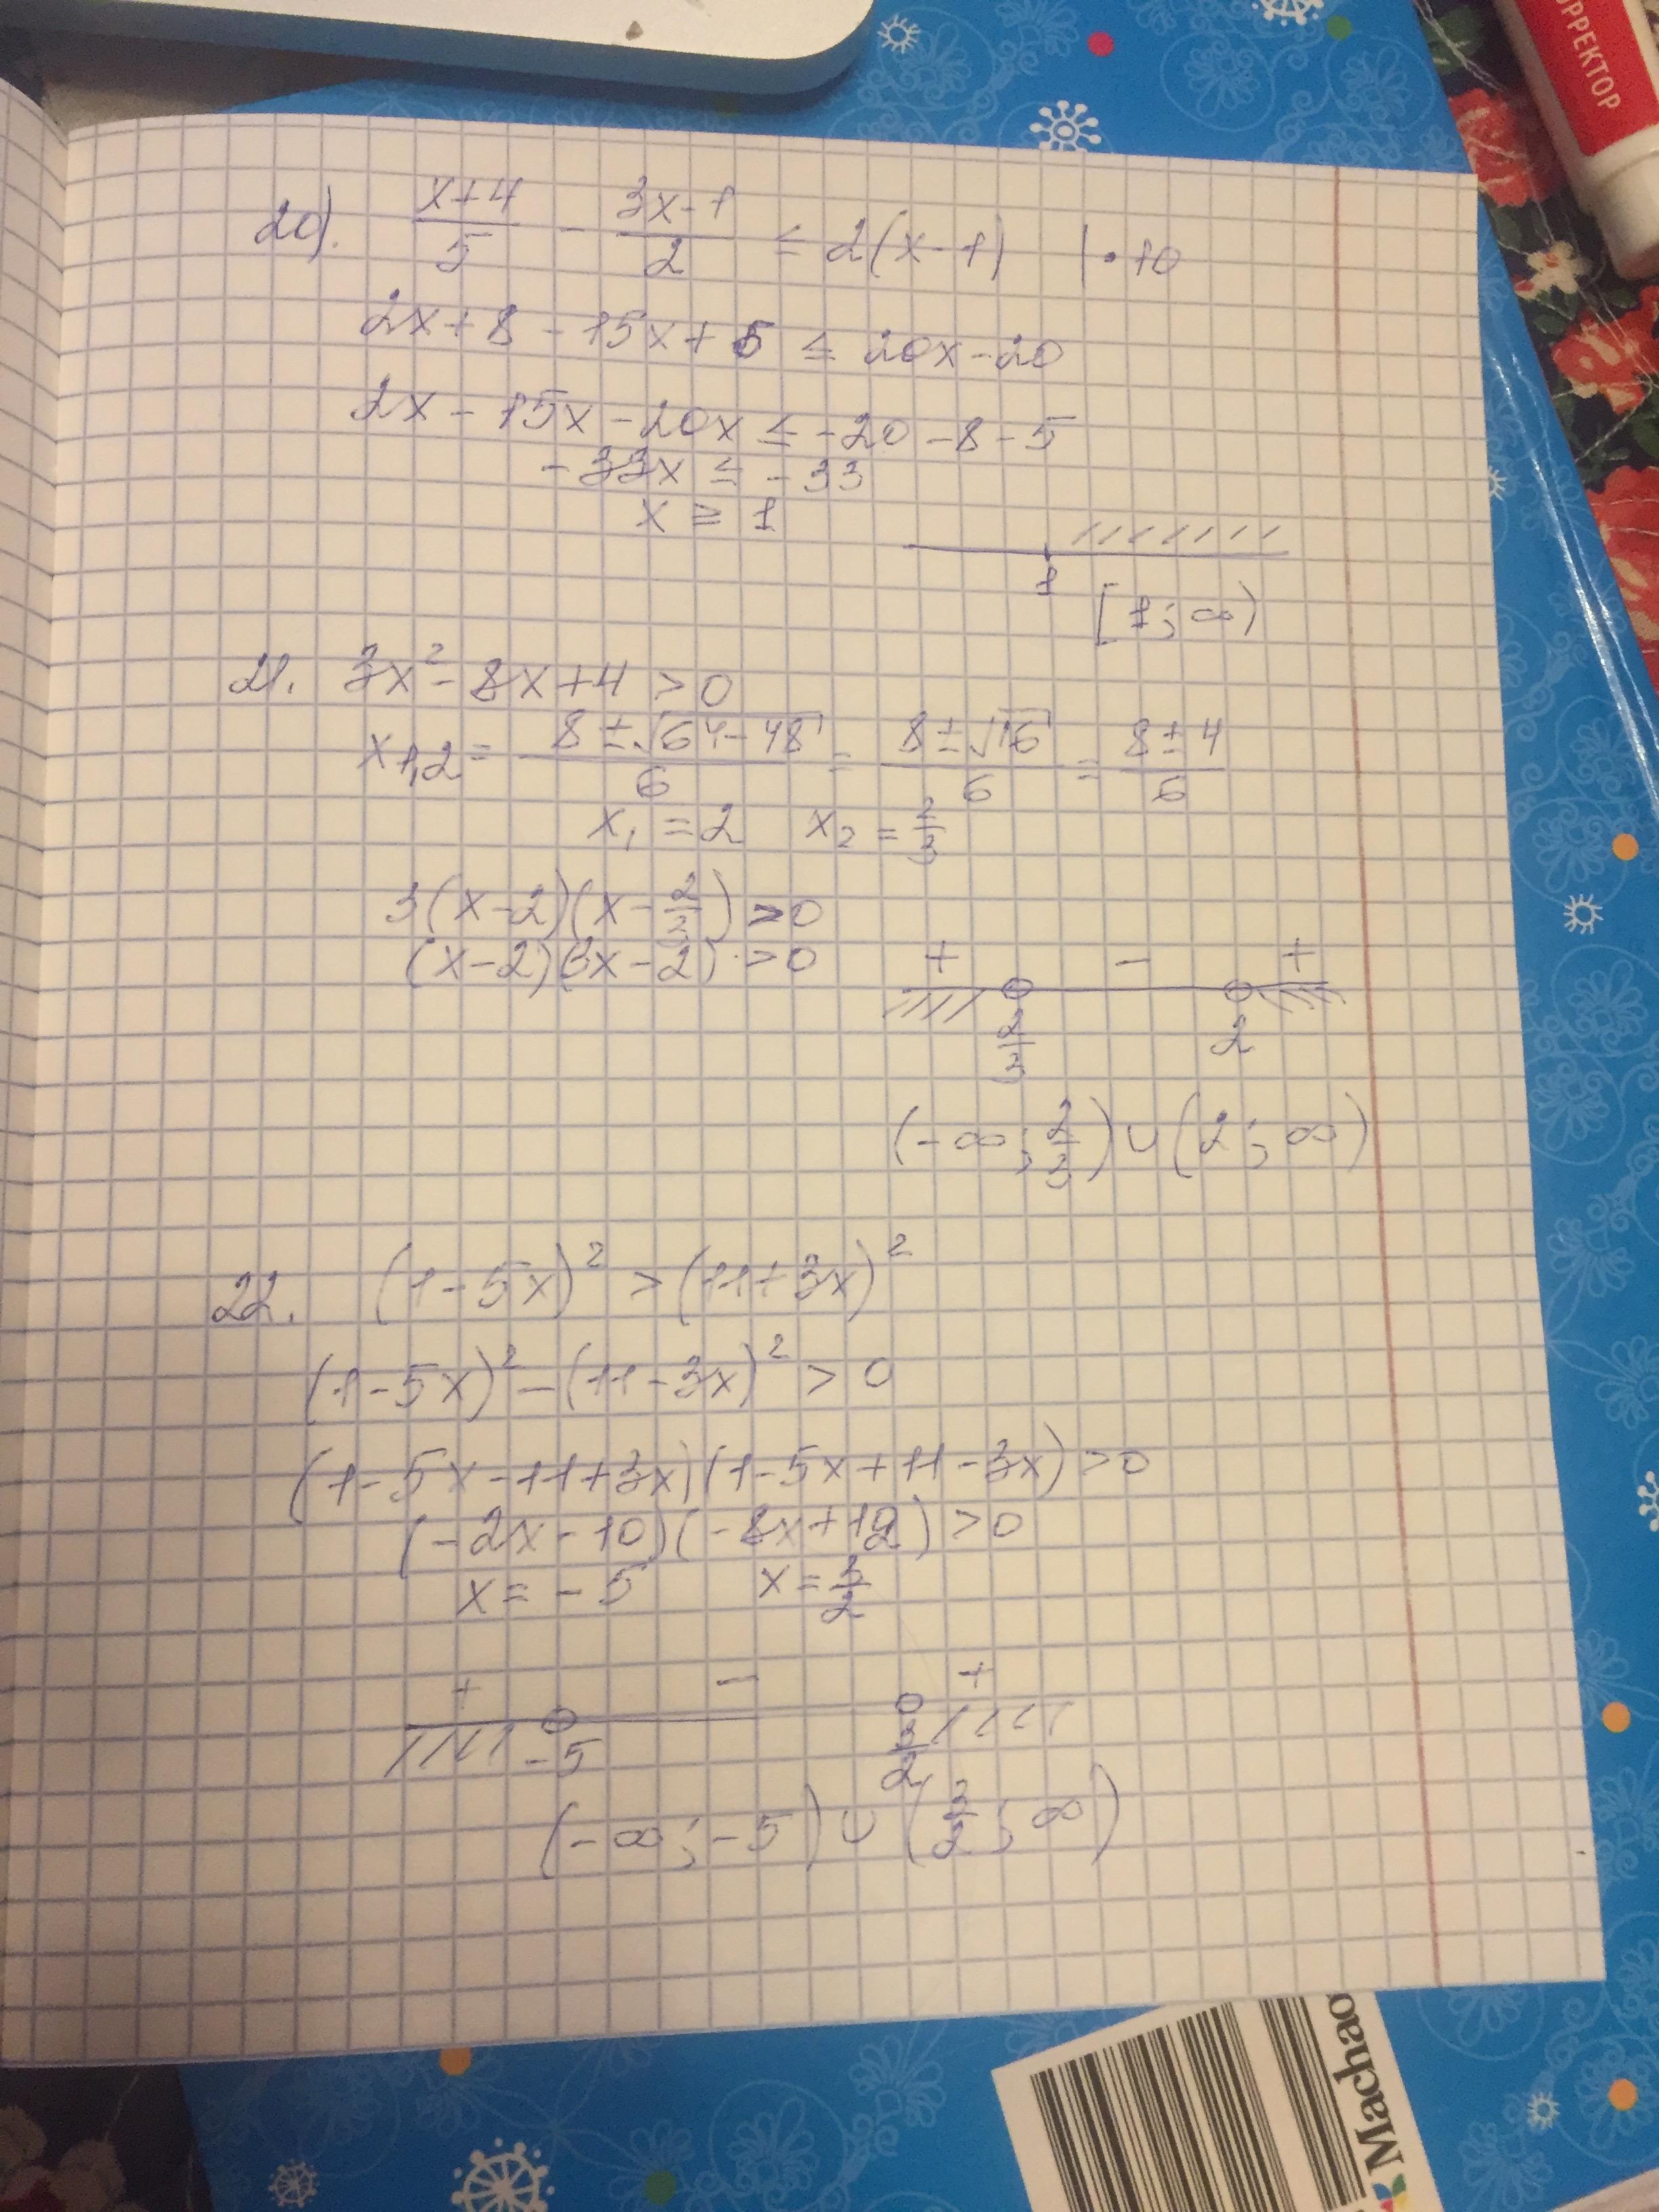 КОРРЕКТОР
20). (x+4)/5 - (3x-1)/2 ≤ 2(x-1) |·10
2x+8-15x+5 ≤ 20x-20
2x-15x-20x ≤ -20-8-5
-33x ≤ -33
x ≥ 1
1
[1; ∞)
21. 3x²-8x+4 > 0
x1,2 = (8±√64-48)/6 = (8±√16)/6 = (8±4)/6
x₁ = 2 x₂ = 2/3
3(x-2)(x-2/3) > 0
(x-2)(3x-2) > 0
+ - +
2/3 2
(-∞; 2/3) ∪ (2; ∞)
22. (1-5x)² > (11+3x)²
(1-5x)² - (11-3x)² > 0
(1-5x-11+3x)(1-5x+11-3x) > 0
(-2x-10)(-8x+12) > 0
x = -5 x = 3/2
+ - +
-5 3/2
(-∞; -5) ∪ (3/2; ∞)
Machao